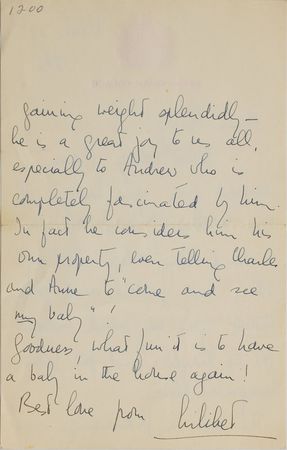 1200
gaining weight splendidly –
he is a great joy to us all,
especially to Andrew who is
completely fascinated by him.
In fact he considers him his
own property, even telling Charles
and Anne to "come and see
my baby"!
Goodness, what fun it is to have
a baby in the house again!
Best love from Lilibet